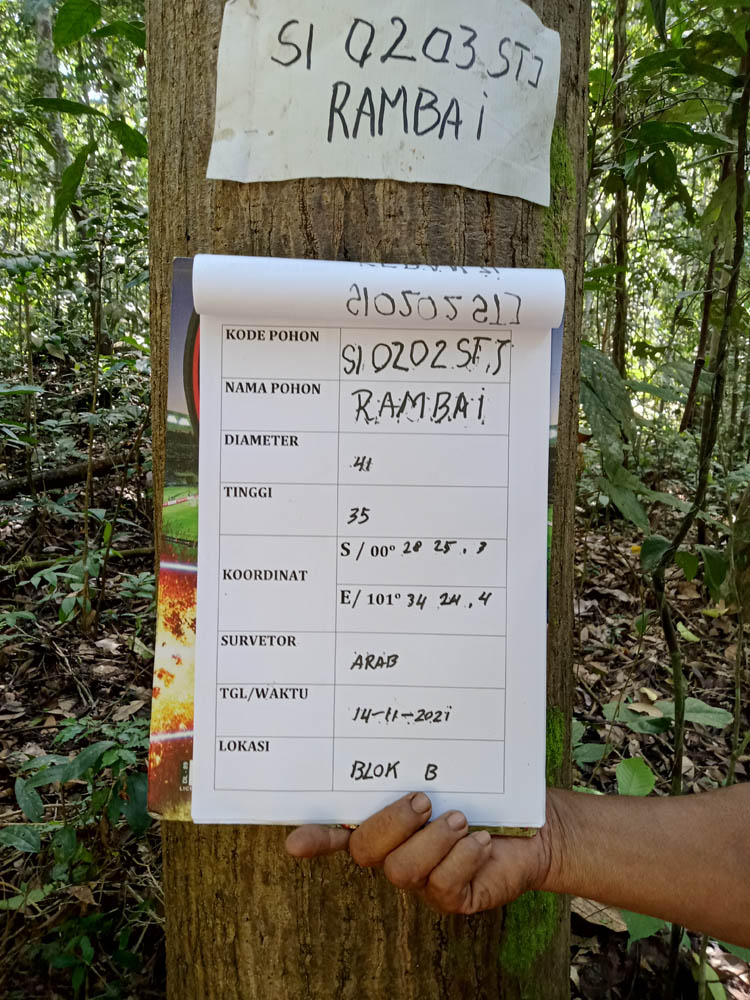 SI 0203 STJ
RAMBAi
KODE POHON SI 0202 STJ
NAMA POHON RAMBAi
DIAMETER 41
TINGGI 35
KOORDINAT
S / 00° 28 25 . 3
E/ 101° 34 24 . 4
SURVETOR ARAB
TGL/WAKTU 14-11-2021
LOKASI BLOK B